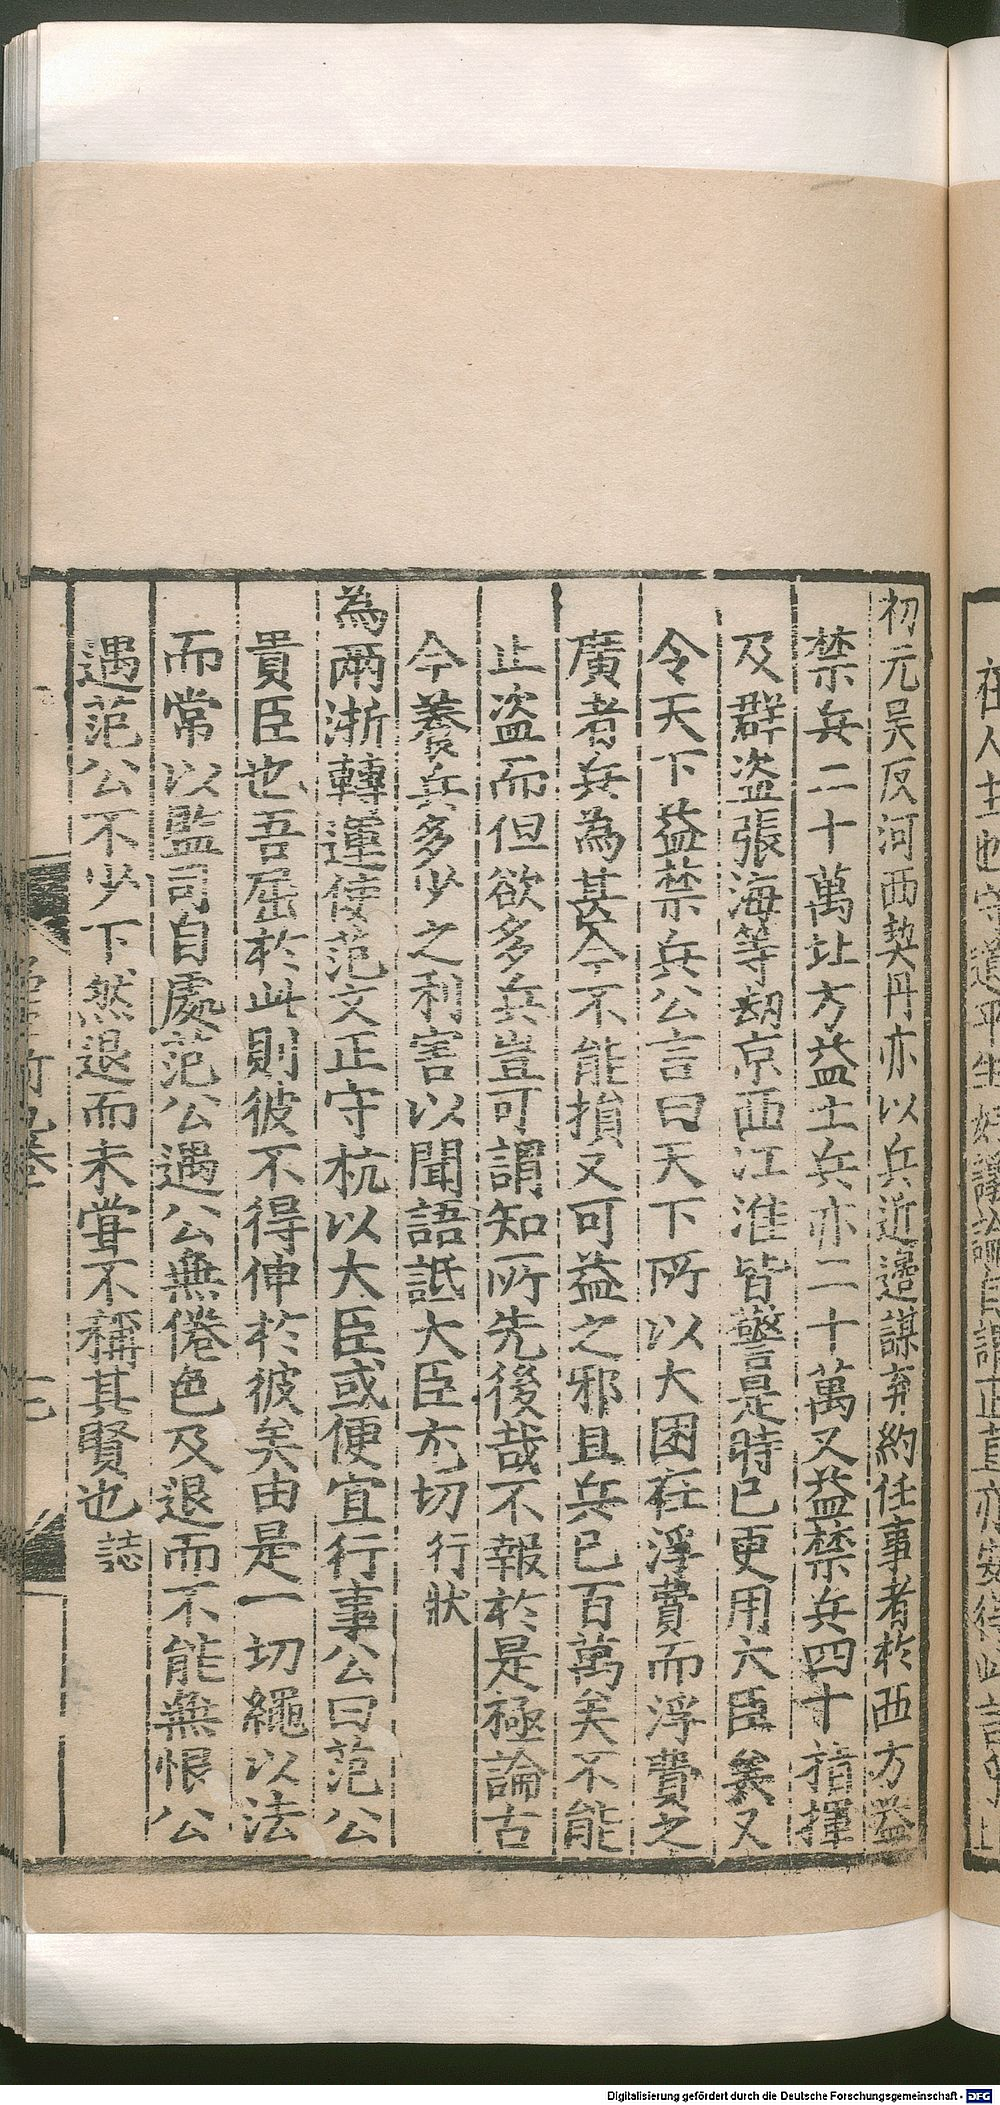 初元昊反河西契丹亦以兵近邉謀弃約任事者於西方益
禁兵二十萬北方益土兵亦二十萬又益禁兵四十指揮
及群盗張海等刼京西江淮皆警是時已更用六臣矣又
令天下益禁兵公言曰天下所以大困在浮費而浮費之
廣者兵為甚今不能損又可益之邪且兵已百萬矣不能
止盗而但欲多兵豈可謂知所先後哉不報於是極論古
今養兵多少之利害以聞語詆大臣尤切 行狀
為兩浙轉運使范文正守杭以大臣或便宜行事公曰范公
貴臣也吾屈於此則彼不得伸於彼矣由是一切繩以法
而常以監司自處范公遇公無倦色及退而不能無恨公
遇范公不少下然退而未甞不稱其賢也 誌
Digitalisierung gefördert durch die Deutsche Forschungsgemeinschaft - DFG